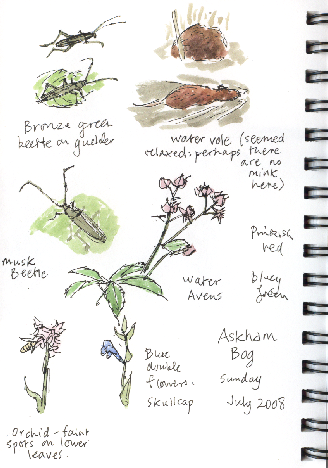 Bronze green
beetle on guelder
water vole (seemed
relaxed: perhaps there
are no
mink
here)
musk
Beetle
Pinkish
red
water
Avens
bluey
green
Askham
Bog
Sunday
July 2008
Blue
flowers.
Skullcap
Orchid - faint
spots on lower
leaves.